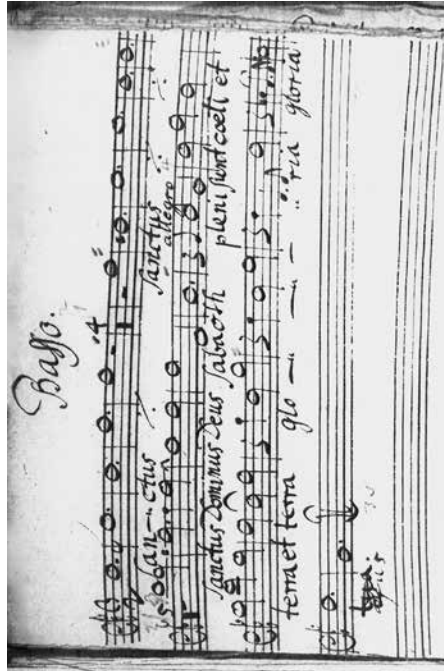 Basso.
4
San-ctus sanctus
allegro
Sanctus Dominus Deus sabaoth pleni sunt coeli et
terra et terra glo — — — ria gloria